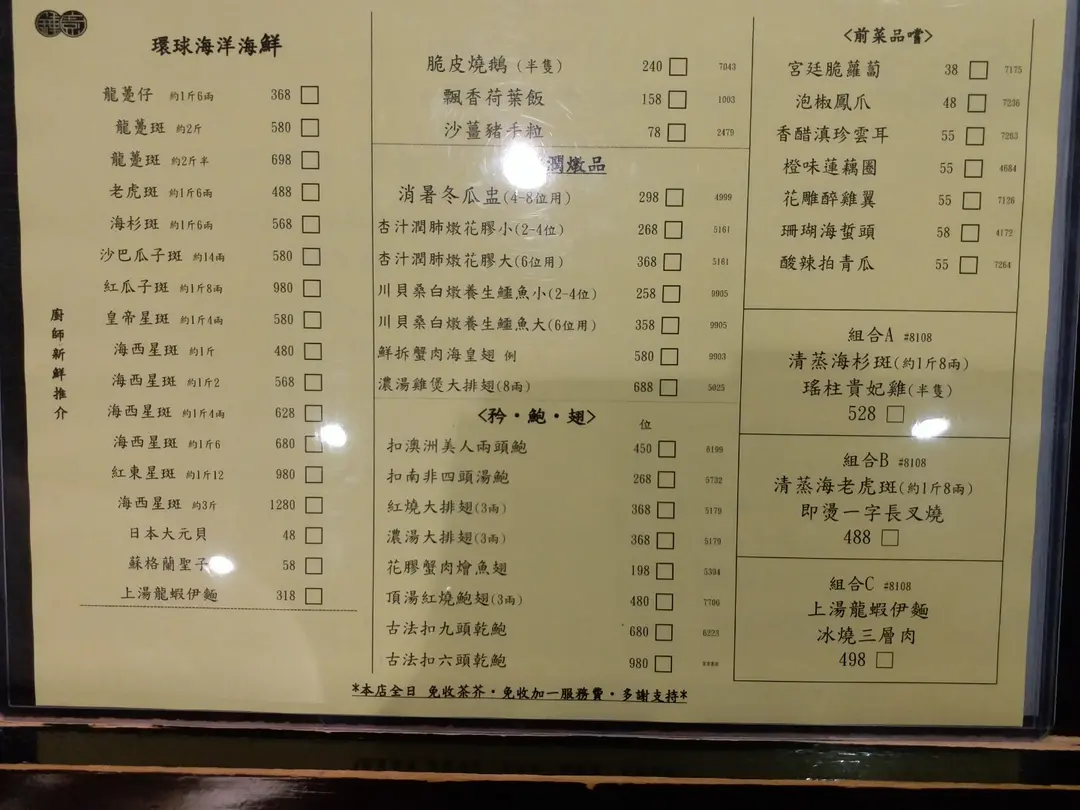 環球海洋海鮮
龍躉仔 約1斤6兩 368
龍躉斑 約2斤 580
龍躉斑 約2斤半 698
老虎斑 約1斤6兩 488
海杉斑 約1斤6兩 568
沙巴瓜子斑 約14兩 580
紅瓜子斑 約1斤8兩 980
皇帝星斑 約1斤4兩 580
海西星斑 約1斤 480
海西星斑 約1斤2 568
海西星斑 約1斤4兩 628
海西星斑 約1斤6 680
紅東星斑 約1斤12 980
海西星斑 約3斤 1280
日本大元貝 48
蘇格蘭聖子 58
上湯龍蝦伊麵 318
廚師新鮮推介
脆皮燒鵝 (半隻) 240 7043
飄香荷葉飯 158 1003
沙薑豬手粒 78 2479
潤燉品
消暑冬瓜盅(4-8位用) 298 4999
杏汁潤肺燉花膠小(2-4位) 268 5161
杏汁潤肺燉花膠大(6位用) 368 5161
川貝桑白燉養生鱷魚小(2-4位) 258 9905
川貝桑白燉養生鱷魚大(6位用) 358 9905
鮮拆蟹肉海皇翅 例 580 9903
濃湯雞煲大排翅(8兩) 688 5025
<矜・鮑・翅> 位
扣澳洲美人兩頭鮑 450 6199
扣南非四頭湯鮑 268 5732
紅燒大排翅(3兩) 368 5179
濃湯大排翅(3兩) 368 5179
花膠蟹肉燴魚翅 198 5394
頂湯紅燒鮑翅(3兩) 480 7706
古法扣九頭乾鮑 680 6223
古法扣六頭乾鮑 980
<前菜品嚐>
宮廷脆蘿蔔 38 7175
泡椒鳳爪 48 7236
香醋滇珍雲耳 55 7263
橙味蓮藕圈 55 4684
花雕醉雞翼 55 7126
珊瑚海蜇頭 58 4172
酸辣拍青瓜 55 7264
組合A #8108
清蒸海杉斑(約1斤8兩)
瑤柱貴妃雞(半隻)
528
組合B #8108
清蒸海老虎斑(約1斤8兩)
即燙一字長叉燒
488
組合C #8108
上湯龍蝦伊麵
冰燒三層肉
498
*本店全日 免收茶芥・免收加一服務費・多謝支持*